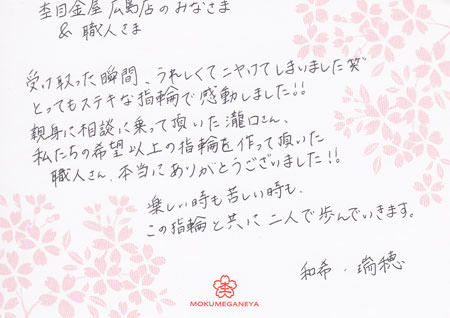 杢目金屋 広島店のみなさま
& 職人さま
受け取った瞬間、うれしくてニヤけてしまいました笑
とってもステキな指輪で感動しました!!
親身に相談に乗って頂いた瀧口さん、
私たちの希望以上の指輪を作って頂いた
職人さん、本当にありがとうございました!!
楽しい時も苦しい時も、
この指輪と共に二人で歩んでいきます。
和希・瑞穂
杢
MOKUMEGANEYA